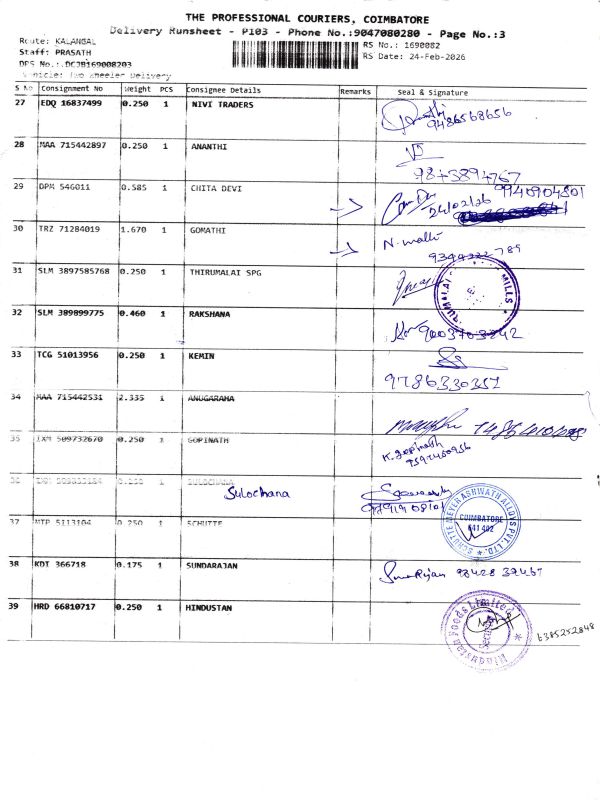 THE PROFESSIONAL COURIERS, COIMBATORE
Delivery Runsheet - P103 - Phone No.:9047080280 - Page No.:3
Route: KALANGAL
RS No.: 1690082
Staff: PRASATH
RS Date: 24-Feb-2026
DPS No.:.DCJB169008203
Vehicle: Two Wheeler Delivery
S No Consignment No Weight PCS Consignee Details Remarks Seal & Signature
27 EDQ 16837499 0.250 1 NIVI TRADERS
9486568656
28 MAA 715442897 0.250 1 ANANTHI
9843894767
29 DPM 546011 0.585 1 CHITA DEVI
9940904801
24/02/26
30 TRZ 71284019 1.670 1 GOMATHI
N. malli
31 SLM 3897585768 0.250 1 THIRUMALAI SPG
MILLS
32 SLM 389899775 0.460 1 RAKSHANA
33 TCG 51013956 0.250 1 KEMIN
9786330351
34 MAA 715442531 2.335 1 ANUGARAHA
35 IXM 509732670 0.250 1 GOPINATH
K. gopinath
9597460956
36 0.250 1 SULOCHANA
Sulochana
9791908101
37 MTP 5113104 0.250 1 SCHUTTE
SCHUTTE MEYER ASHWATH ALLOYS PVT. LTD.
COIMBATORE
641 402
38 KDI 366718 0.175 1 SUNDARAJAN
39 HRD 66810717 0.250 1 HINDUSTAN
Hindustan Foods Limited
6385252848